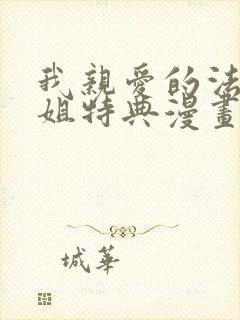 我親愛的法
姐特典漫畫
城華